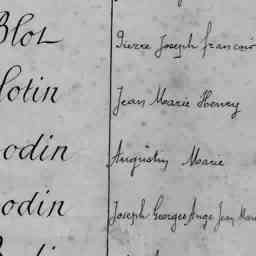 Blot Pierre Joseph francois
lotin Jean Marie Henry
odin Augustin Marie
odin Joseph Georges Ange Jean Marie